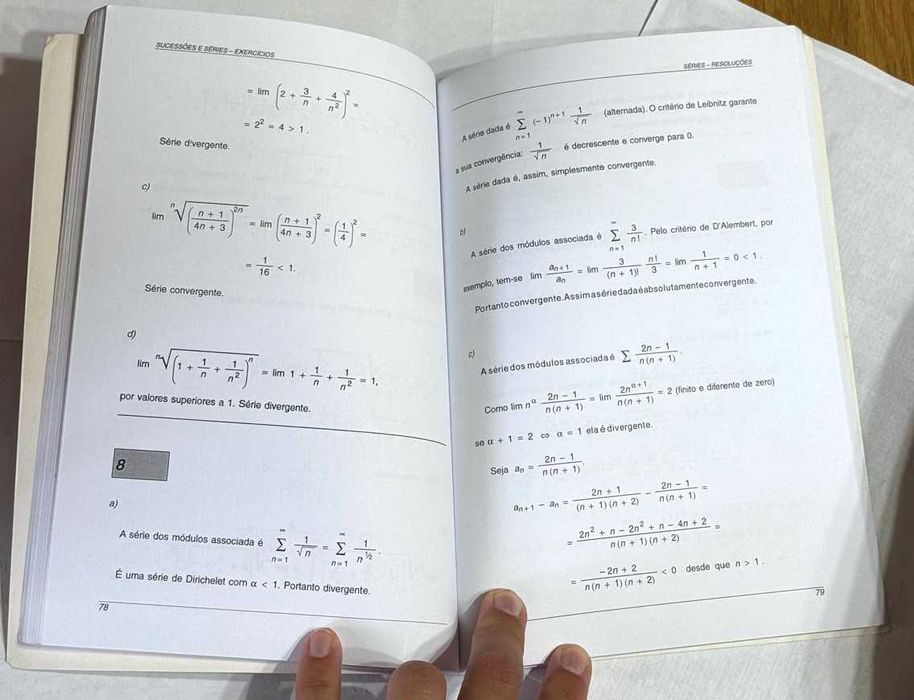 SUCESSÕES E SÉRIES – EXERCÍCIOS
= lim (2 + 3/n + 4/n²)² =
= 2² = 4 > 1.
Série divergente.
c)
lim ⁿ√((n + 1)/(4n + 3))²ⁿ = lim ((n + 1)/(4n + 3))² = (1/4)² =
= 1/16 < 1.
Série convergente.
d)
lim ⁿ√(1 + 1/n + 1/n²)ⁿ = lim 1 + 1/n + 1/n² = 1,
por valores superiores a 1. Série divergente.
8
a)
A série dos módulos associada é ∞ Σ n=1 1/√n = ∞ Σ n=1 1/n^½.
É uma série de Dirichelet com α < 1. Portanto divergente.
78
SÉRIES – RESOLUÇÕES
A série dada é ∞ Σ n=1 (−1)ⁿ⁺¹ 1/√n (alternada). O critério de Leibnitz garante
a sua convergência: 1/√n é decrescente e converge para 0.
A série dada é, assim, simplesmente convergente.
b)
A série dos módulos associada é ∞ Σ n=1 3/n!. Pelo critério de D'Alembert, por
exemplo, tem-se lim aₙ₊₁/aₙ = lim 3/(n + 1)! n!/3 = lim 1/(n + 1) = 0 < 1.
Portanto convergente. Assim a série dada é absolutamente convergente.
c)
A série dos módulos associada é Σ (2n − 1)/(n(n + 1)).
Como lim n^α (2n − 1)/(n(n + 1)) = lim 2n^(α+1)/(n(n + 1)) = 2 (finito e diferente de zero)
se α + 1 = 2 ⇔ α = 1 ela é divergente.
Seja aₙ = (2n − 1)/(n(n + 1)).
aₙ₊₁ − aₙ = (2n + 1)/((n + 1)(n + 2)) − (2n − 1)/(n(n + 1)) =
= (2n² + n − 2n² + n − 4n + 2)/(n(n + 1)(n + 2)) =
= (−2n + 2)/(n(n + 1)(n + 2)) < 0 desde que n > 1.
79